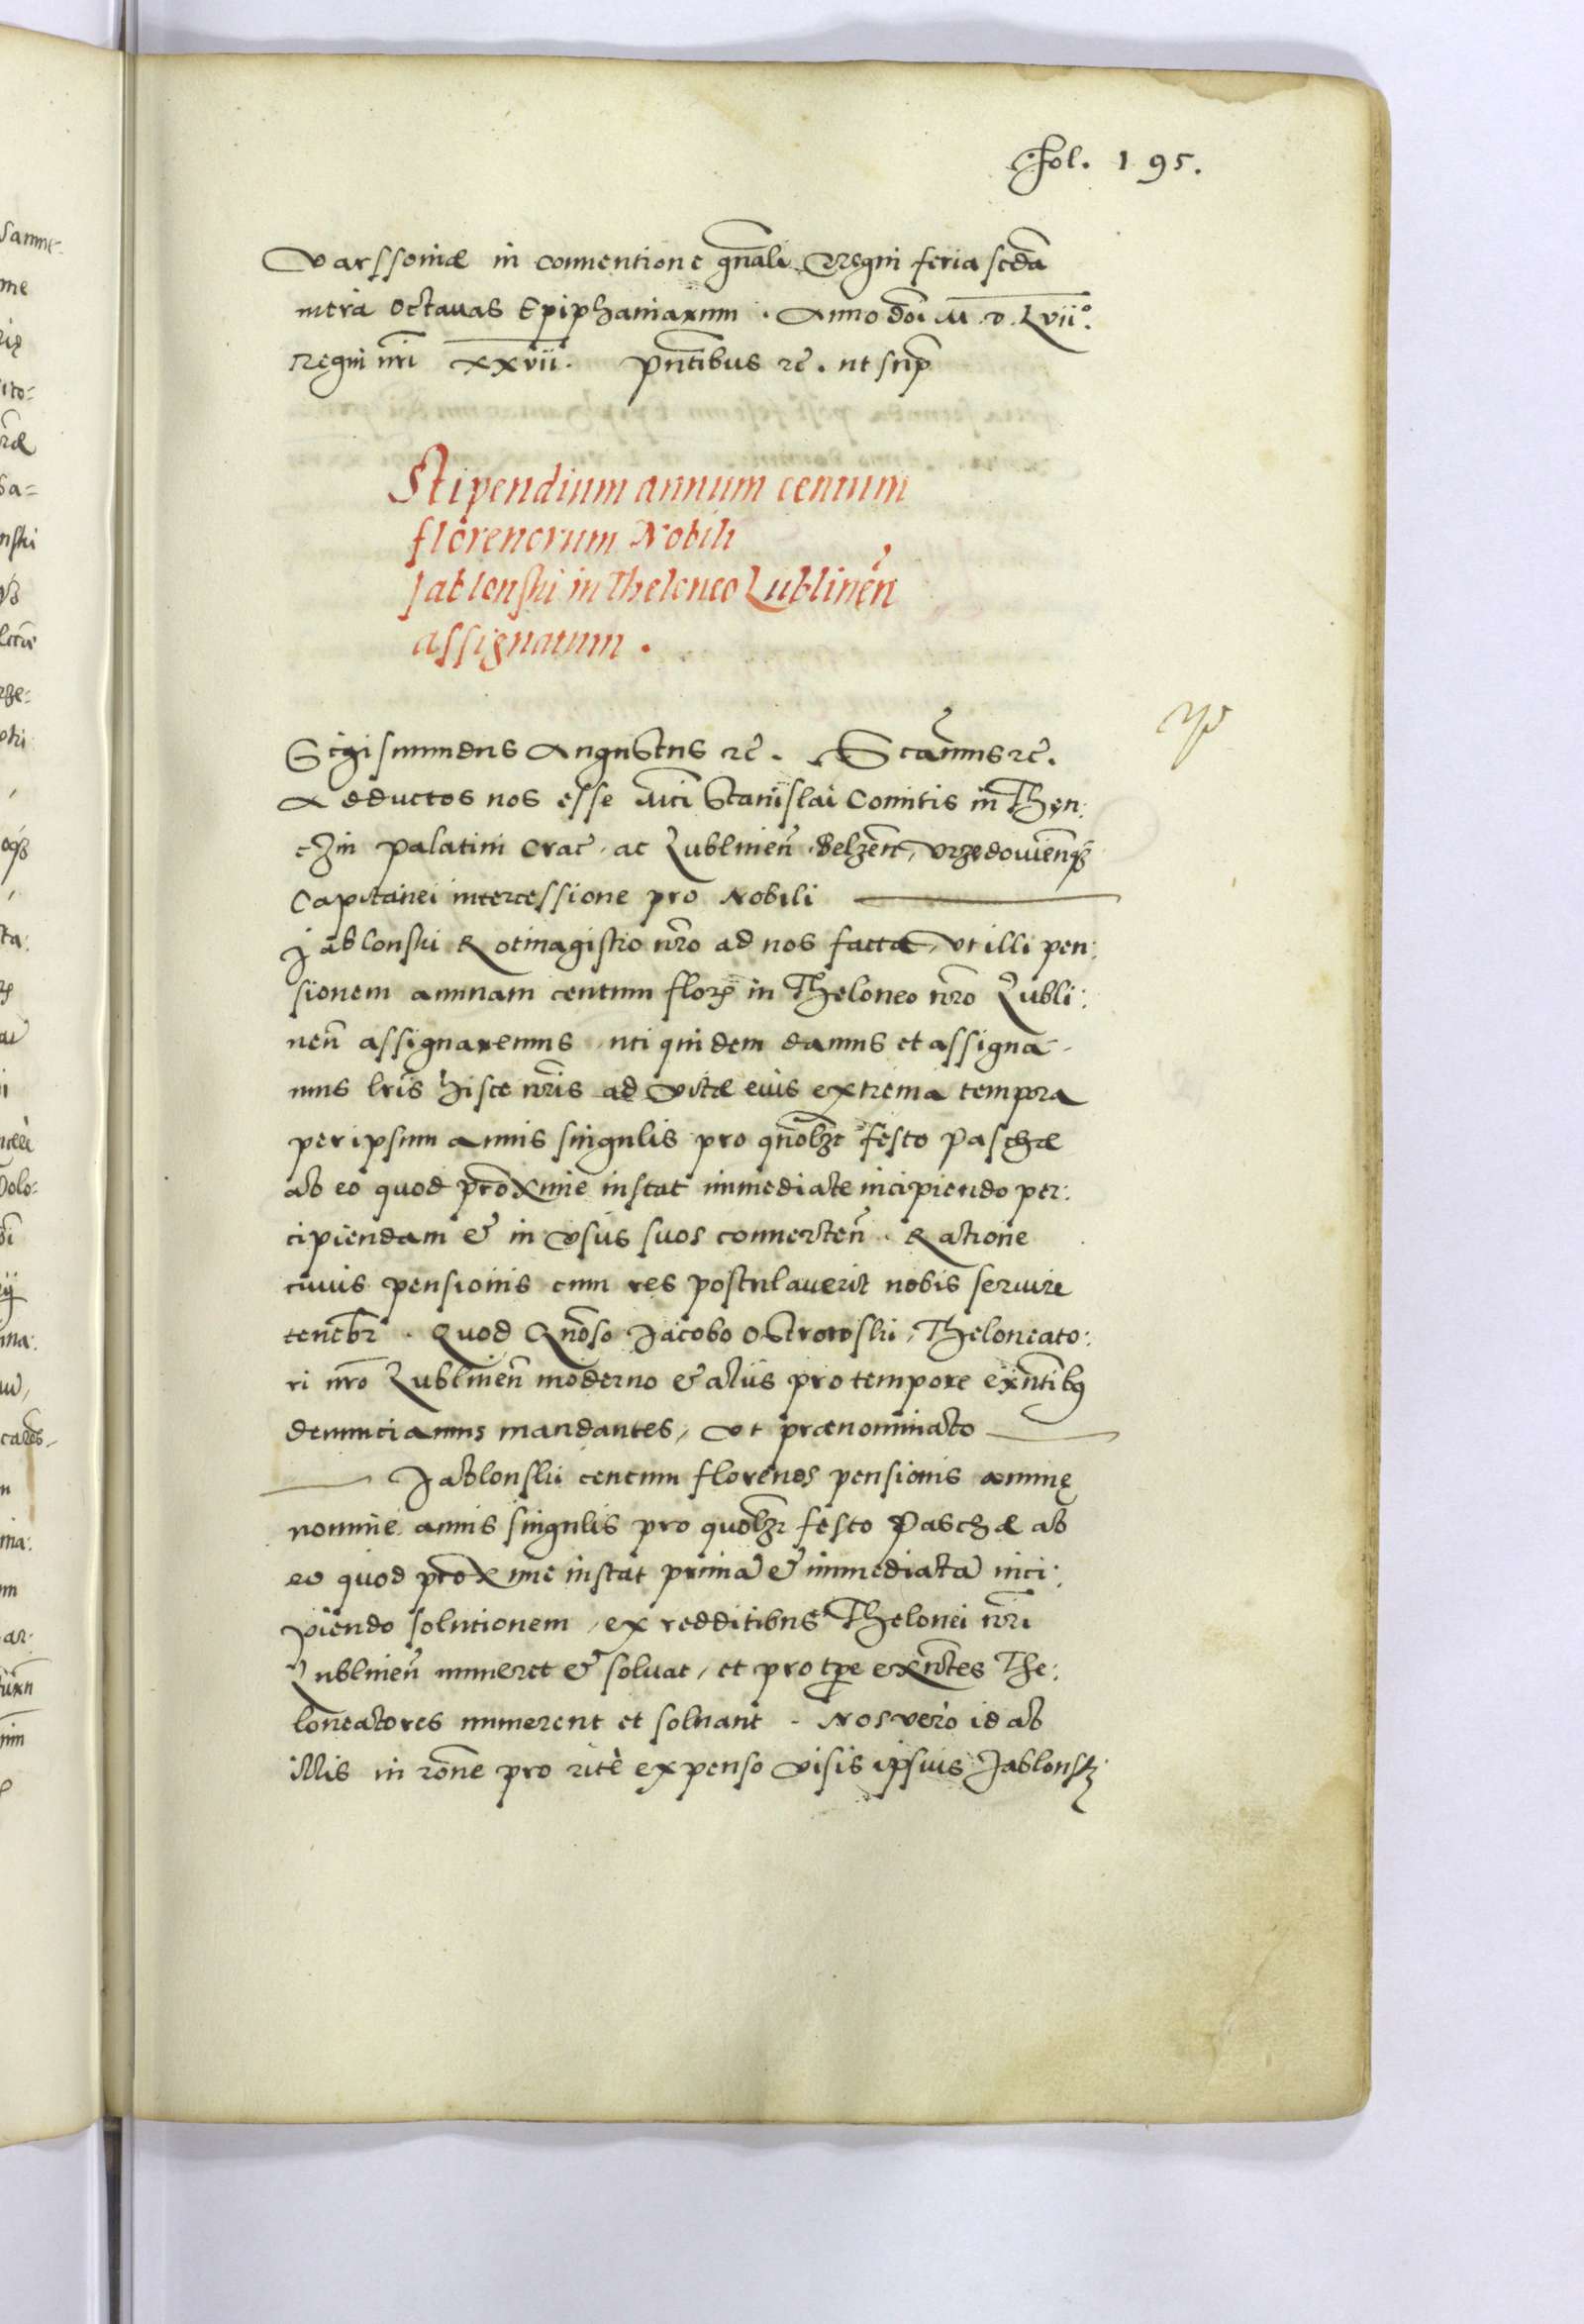 Fol. 195.
Varssouiæ in conuentione gñali Regni feria scďa
intra Octauas Epiphaniarum. Anno doi M.D.Lvii°.
Regni nri xxvii. Pntibus rc. ut supr
Stipendium annuum centum
florenorum Nobili
Jablonski in Theloneo Lublineñ
assignatum.
Sigismundus Augustus rc. Scamus rc.
Adductos nos esse Mci Stanislai Comitis in Then:
czin Palatini Crac. ac Lublineñ Belzeñ, Vrzedouieñqz
Capitanei intercessione pro Nobili
Jablonski Rotmagistro nro ad nos facta, vt illi pen:
sionem annuam centum flor in Theloneo nro Lubli:
neñ assignaremus uti quidem damus et assigna-
mus lris hisce nris ad vitæ eius extrema tempora
per ipsum annis singulis pro quolzt festo Paschæ
ab eo quod proxime instat immediate incipiendo per:
cipiendam & in vsus suos conuerteñ. Ratione
cuius pensionis cum res postulauerit nobis seruire
tenebr. Quod Gnoso Jacobo Ostrowski, Theloneato:
ri nro Lublineñ moderno & aliis pro tempore exñtibus
denunciamus mandantes, vt prænominato
Jablonskii centum florenos pensionis annuę
nomine annis singulis pro quolzt festo Paschæ ab
eo quod proxime instat prima & immediata inci:
piendo solutionem, ex redditibus Thelonei nri
Lublineñ numeret & soluat, et pro tpe exñtes The:
loneatores numerent et soluant. Nos vero id ab
illis in rone pro rite expenso visis ipsius Jablonskii